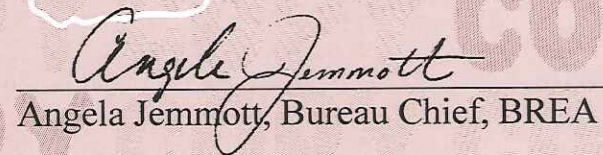 CO
Angela Jemmott
Angela Jemmott, Bureau Chief, BREA